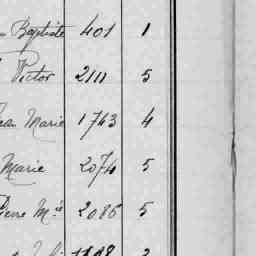 Baptiste 401 1
Victor 2111 5
Jean Marie 1743 4
Marie 2074 5
Pierre Mie 2086 5